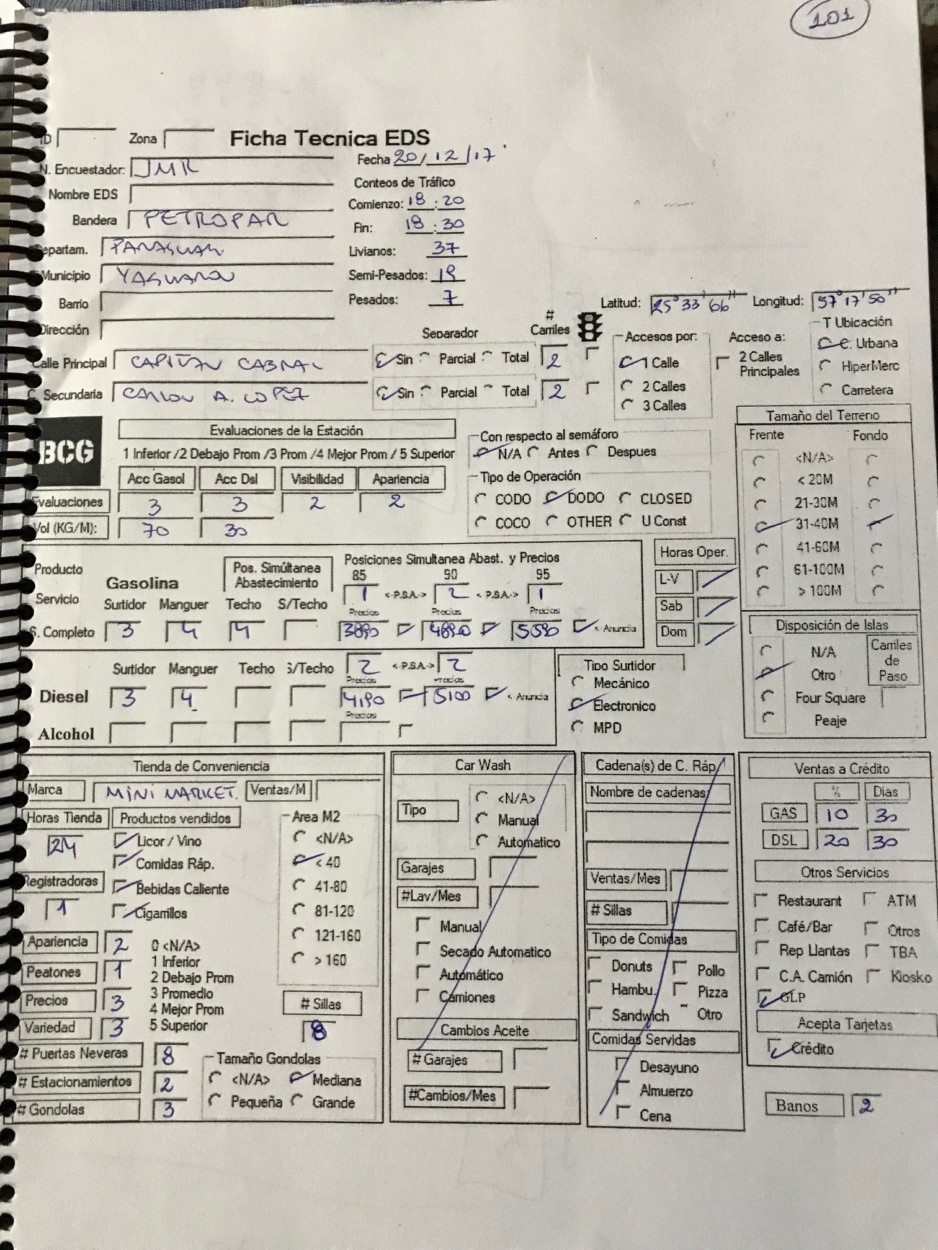 101
ID Zona Ficha Tecnica EDS
N. Encuestador: JMK Fecha 20/12/17
Nombre EDS Conteos de Tráfico
Comienzo: 18:20
Bandera PETROPAR Fin: 18:30
Departam. PARAGUARI Livianos: 37
Municipio YAGUARON Semi-Pesados: 19
Barrio Pesados: 7
Latitud: 25°33'66" Longitud: 57°17'50"
Dirección
Separador # Carriles Accesos por: Acceso a: T Ubicación
Calle Principal CAPITAN CABRAL Sin Parcial Total 2 1 Calle 2 Calles Principales C. Urbana
HiperMerc
C. Secundaria CARLOS A. LOPEZ Sin Parcial Total 2 2 Calles Carretera
3 Calles
BCG
Evaluaciones de la Estación
1 Inferior /2 Debajo Prom /3 Prom /4 Mejor Prom / 5 Superior
Acc Gasol Acc Dsl Visibilidad Apariencia
Evaluaciones 3 3 2 2
Vol (KG/M): 70 30
Con respecto al semáforo
N/A Antes Despues
Tipo de Operación
CODO DODO CLOSED
COCO OTHER U Const
Tamaño del Terreno
Frente Fondo
<N/A>
< 20M
21-30M
31-40M
41-60M
61-100M
> 100M
Producto Servicio Gasolina Pos. Simúltanea Abastecimiento Posiciones Simultanea Abast. y Precios
85 90 95
1 <-P.S.A.-> 2 <-P.S.A.-> 1
Surtidor Manguer Techo S/Techo Precios Precios Precios
S. Completo 3 4 4 3890 4890 5590 <- Anuncia
Horas Oper.
L-V
Sab
Dom
Surtidor Manguer Techo S/Techo 2 <-P.S.A.-> 2
Precios Precios
Diesel 3 4 4190 5100 <- Anuncia
Precios
Alcohol
Tipo Surtidor
Mecánico
Electronico
MPD
Disposición de Islas
N/A Carriles de Paso
Otro
Four Square
Peaje
Tienda de Conveniencia
Marca MINI MARKET. Ventas/M
Horas Tienda Productos vendidos Area M2
24 Licor / Vino <N/A>
Comidas Ráp. < 40
Registradoras Bebidas Caliente 41-80
1 Cigarrillos 81-120
121-160
> 160
Apariencia 2 0 <N/A>
Peatones 1 1 Inferior
2 Debajo Prom
Precios 3 3 Promedio # Sillas
4 Mejor Prom
Variedad 3 5 Superior 8
# Puertas Neveras 8 Tamaño Gondolas
# Estacionamientos 2 <N/A> Mediana
# Gondolas 3 Pequeña Grande
Car Wash
Tipo <N/A>
Manual
Automatico
Garajes
#Lav/Mes
Manual
Secado Automatico
Automático
Camiones
Cambios Aceite
# Garajes
#Cambios/Mes
Cadena(s) de C. Ráp.
Nombre de cadenas
Ventas/Mes
# Sillas
Tipo de Comidas
Donuts Pollo
Hambu. Pizza
Sandwich Otro
Comidas Servidas
Desayuno
Almuerzo
Cena
Ventas a Crédito
% Dias
GAS 10 30
DSL 20 30
Otros Servicios
Restaurant ATM
Café/Bar Otros
Rep Llantas TBA
C.A. Camión Kiosko
GLP
Acepta Tarjetas
Crédito
Banos 2